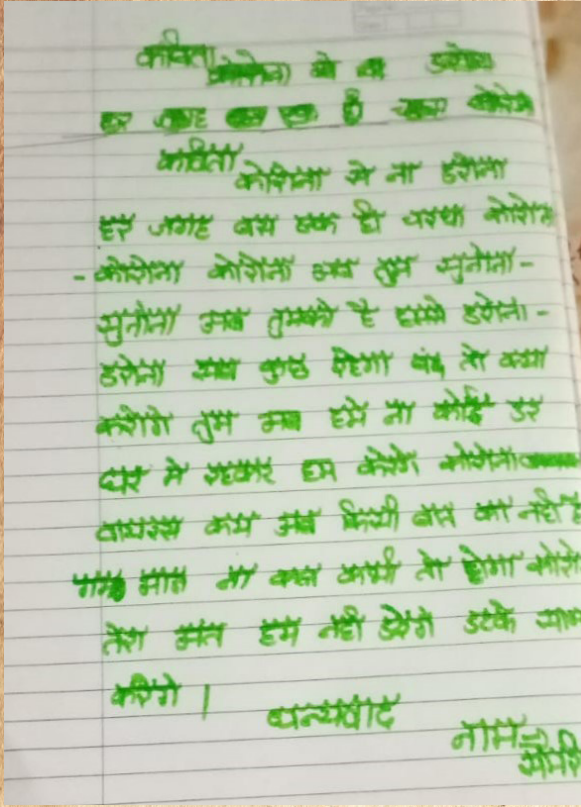 कविता
हर जगह बस एक ही
कविता
कोरोना से ना डरोना
हर जगह बस एक ही चरचा कोरोना
- कोरोना कोरोना अब तुम सुनोना -
सुनोना अब तुमको है हमसे डरोना -
डरोना सब कुछ रहेगा बंद तो क्या
करोगे तुम अब हमे ना कोई डर
घर मे रहकर हम करेगे कोरोना
वायरस कम अब किसी बात का नही है
मान ना कल कभी तो होगा कोरोना
तेरा अंत हम नही डरेंगे डटके
करेंगे ।
धन्यवाद
नाम